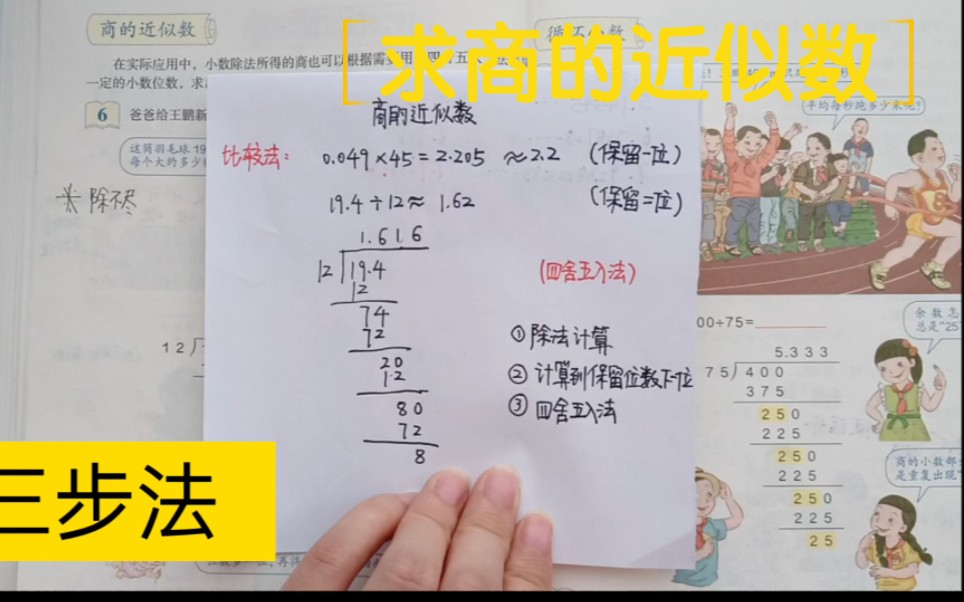 [求商的近似数]
商的近似数
循环小数
在实际应用中，小数除法所得的商也可以根据需要用
一定的小数位数，求
6 爸爸给王鹏新
这筒羽毛球19
每个大约多少
平均每秒跑多少米呢？
*除不尽
商的近似数
比较法： 0.049×45=2.205 ≈2.2 (保留一位)
19.4÷12≈ 1.62 (保留二位)
1.616
12 19.4
12
74
72
20
12
80
72
8
(四舍五入法)
①除法计算
②计算到保留位数下一位
③四舍五入法
12
00÷75=
余数怎
总是“25”
5.333
75 400
375
250
225
250
225
250
225
25
商的小数部
是重复出现
三步法